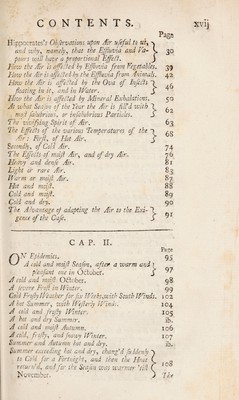 CONTENTS. xvij
Page
Hippocrates's Observations upon Air useful to us,
and why, namely, that the Effluvia and Va-
pours will have a proportional Effect. 30
How the Air is affected by Effluvia from Vegetables, 39
How the Air is affected by the Effluvia from Animals. 42
How the Air is affected by the Ova of Insects
floating in it, and in Water. 46
How the Air is affected by Mineral Exhalations. 50
At what Season of the Year the Air is fill'd with
most salubrious, or insalubrious Particles. 62
The vivifying Spirit of Air. 63
The Effects of the various Temperatures of the
Air: First, of Hot Air. 68
Secondly, of Cold Air. 74
The Effects of moist Air, and of dry Air. 76
Heavy and dense Air. 81
Light or rare Air. 83
Warm or moist Air. 85
Hot and moist. 88
Cold and moist. 89
Cold and dry. 90
The Advantage of adapting the Air to the Exi-
gence of the Case. 91
CAP. II.
Page
ON Epidemics. 95
A cold and moist Season, after a warm and
pleasant one in October. 97
A cold and moist October. 98
A severe Frost in Winter. 99
Cold Frosty Weather for six Weeks, with South Winds. 102
A hot Summer, with Westerly Winds. 104
A cold and frosty Winter. 105
A hot and dry Summer. ib.
A cold and moist Autumn. 106
A cold, frosty, and snowy Winter. 107
Summer and Autumn hot and dry. ib.
Summer exceeding hot and dry, chang'd suddenly
to Cold for a Fortnight, and then the Heat
return'd, and for the Season was warmer 'till
November. 108
The